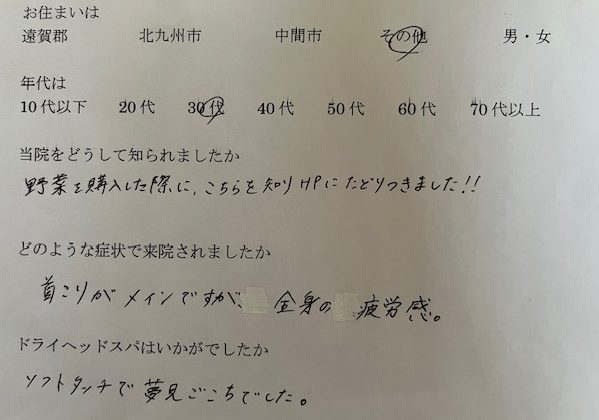 お住まいは
遠賀郡 北九州市 中間市 その他 男・女
年代は
10代以下 20代 30代 40代 50代 60代 70代以上
当院をどうして知られましたか
野菜を購入した際に、こちらを知りHPにたどりつきました!!
どのような症状で来院されましたか
首こりがメインですが、全身の疲労感。
ドライヘッドスパはいかがでしたか
ソフトタッチで夢見ごこちでした。